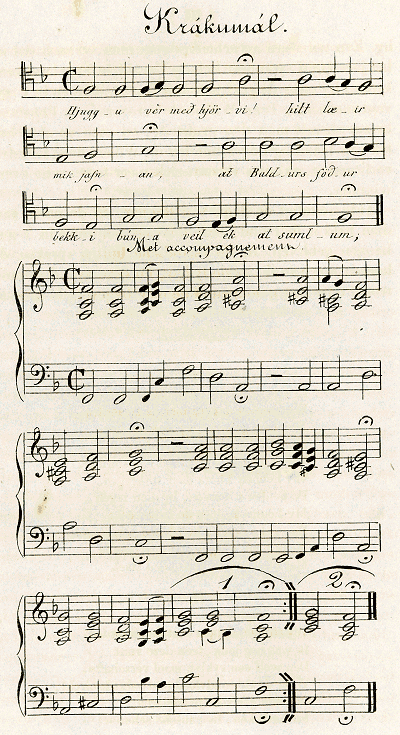 Krákumál.
Hjugg - u vèr með hjör - vi! hilt læ - ir
mik jafn - an, at Bald - urs föð - ur
bekk - i bún - a veit ek at suml - um;
Met accompagnement.
1 2